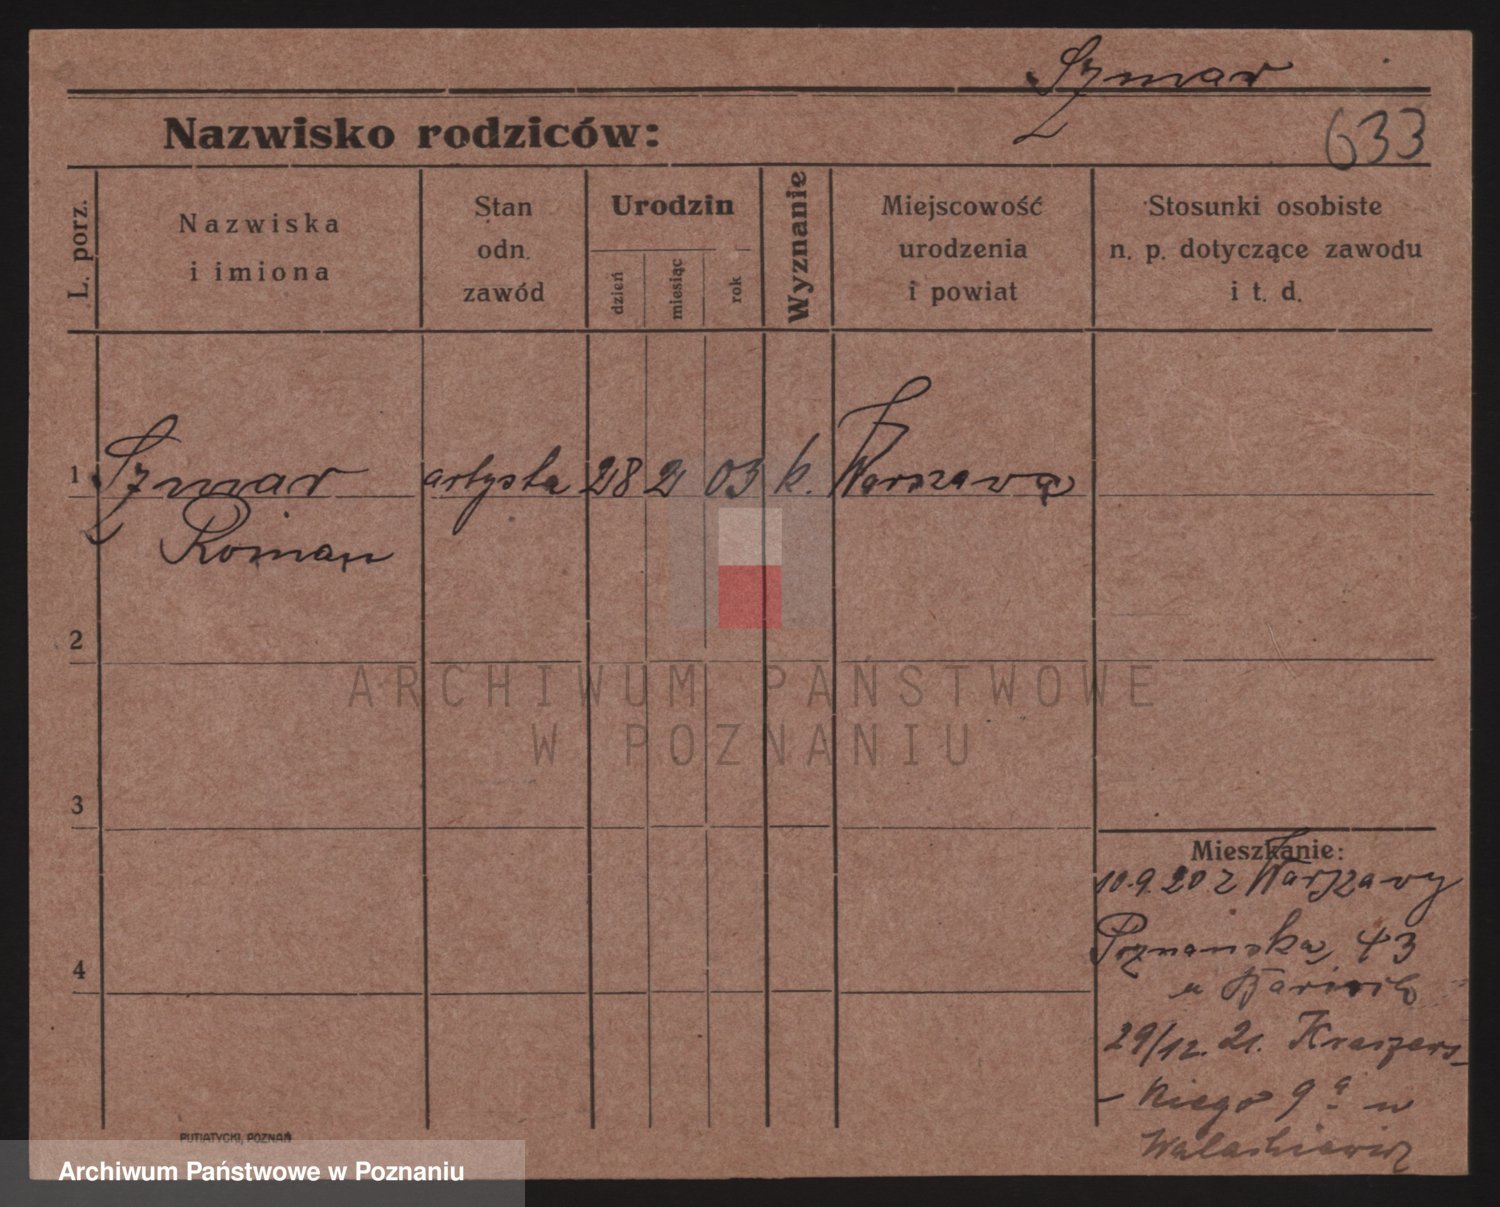 Szmar
Nazwisko rodziców:
633
L. porz.
Nazwiska
i imiona
Stan
odn.
zawód
Urodzin
dzień
miesiąc
rok
Wyznanie
Miejscowość
urodzenia
i powiat
Stosunki osobiste
n. p. dotyczące zawodu
i t. d.
1 Szmar artysta 28 2 03 k. Warszawa
Roman
2
ARCHIWUM PAŃSTWOWE
W POZNANIU
3
Mieszkanie:
10.9.20 z Warszawy
Poznańska 43
u
4
29/12. 21. Kraszews-
-kiego 9a u
Walaskiewicz
PUTIATYCKI, POZNAŃ
Archiwum Państwowe w Poznaniu